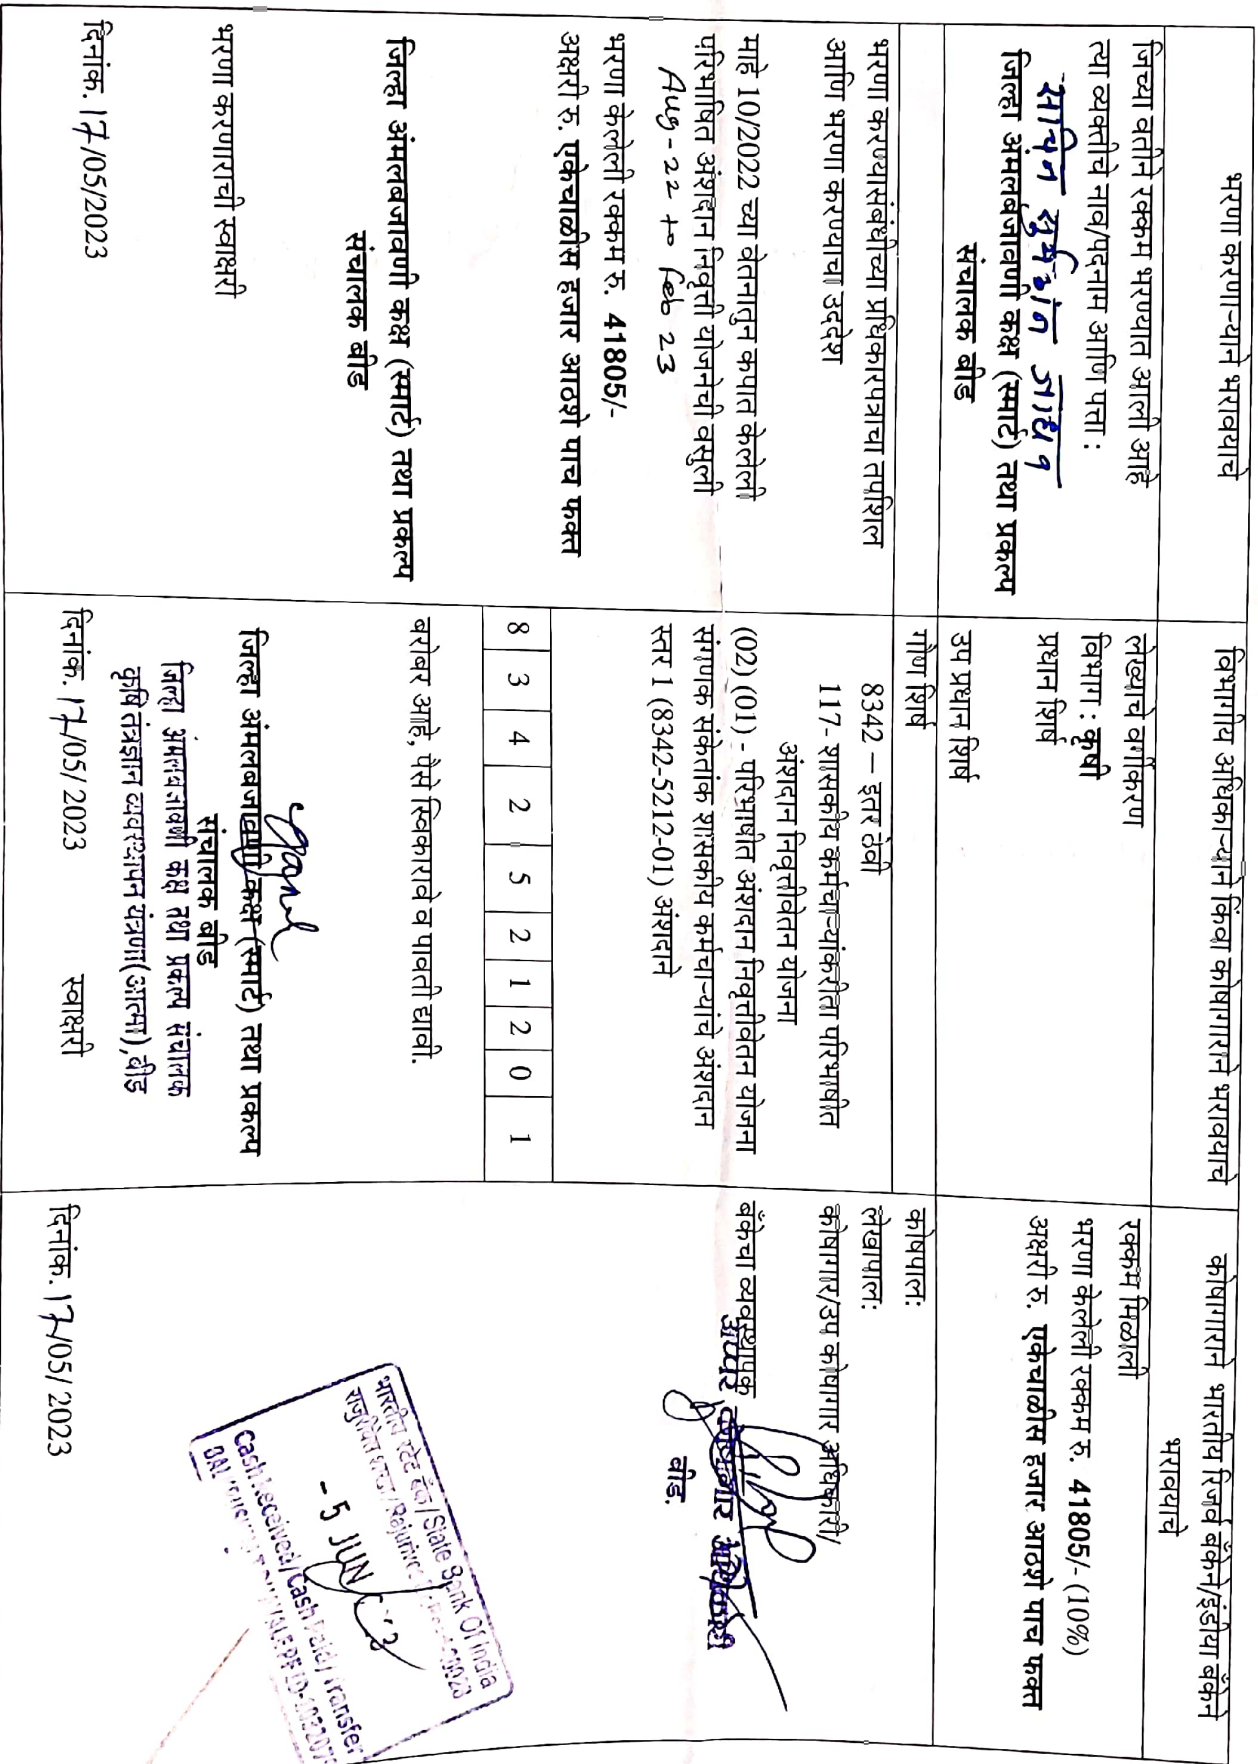 भरणा करणा-याने भरावयाचे
जिच्या वतीने रक्कम भरण्यात आली आहे
त्या व्यक्तीचे नाव/पदनाम आणि पत्ता :
जिल्हा अंमलबजावणी कक्ष (स्मार्ट) तथा प्रकल्प
संचालक बीड
भरणा करण्यासंबंधीच्या प्राधिकारपत्राचा तपशिल
आणि भरणा करण्याचा उद्देश
माहे 10/2022 च्या वेतनातुन कपात केलेली
परिभाषित अंशदान निवृत्ती योजनेची वसुली
Aug-22 to Feb 23
भरणा केलेली रक्कम रु. 41805/-
अक्षरी रु. एकेचाळीस हजार आठशे पाच फक्त
जिल्हा अंमलबजावणी कक्ष (स्मार्ट) तथा प्रकल्प
संचालक बीड
भरणा करणाराची स्वाक्षरी
दिनांक. 17/05/2023
विभागीय अधिका-याने किंवा कोषागाराने भरावयाचे
लेख्याचे वर्गीकरण
विभाग : कृषी
प्रधान शिर्ष
उप प्रधान शिर्ष
गौण शिर्ष
8342 – इतर ठेवी
117- शासकीय कर्मचा-यांकरीता परिभाषीत
अंशदान निवृत्तीवेतन योजना
(02) (01) - परिभाषीत अंशदान निवृत्तीवेतन योजना
संगणक संकेतांक शासकीय कर्मचा-यांचे अंशदान
स्तर 1 (8342-5212-01) अंशदाने
8 3 4 2 5 2 1 2 0 1
बरोबर आहे, पैसे स्विकारावे व पावती द्यावी.
जिल्हा अंमलबजावणी कक्ष (स्मार्ट) तथा प्रकल्प
संचालक बीड
जिल्हा अंमलबजावणी कक्ष तथा प्रकल्प संचालक
कृषि तंत्रज्ञान व्यवस्थापन यंत्रणा(आत्मा),बीड
दिनांक. 17/05/2023 स्वाक्षरी
कोषागाराने भारतीय रिजर्व बँकेने/इंडीया बँकेने
भरावयाचे
रक्कम मिळाली
भरणा केलेली रक्कम रु. 41805/- (10%)
अक्षरी रु. एकेचाळीस हजार आठशे पाच फक्त
कोषपाल:
लेखापाल:
कोषागार/उप कोषागार अधिकारी/
बँकेचा व्यवस्थापक
अपर कोषागार अधिकारी
बीड.
भारतीय स्टेट बैंक / State Bank Of India
- 5 JUN
Cash Received / Cash Paid / Transfer
दिनांक. 17/05/2023